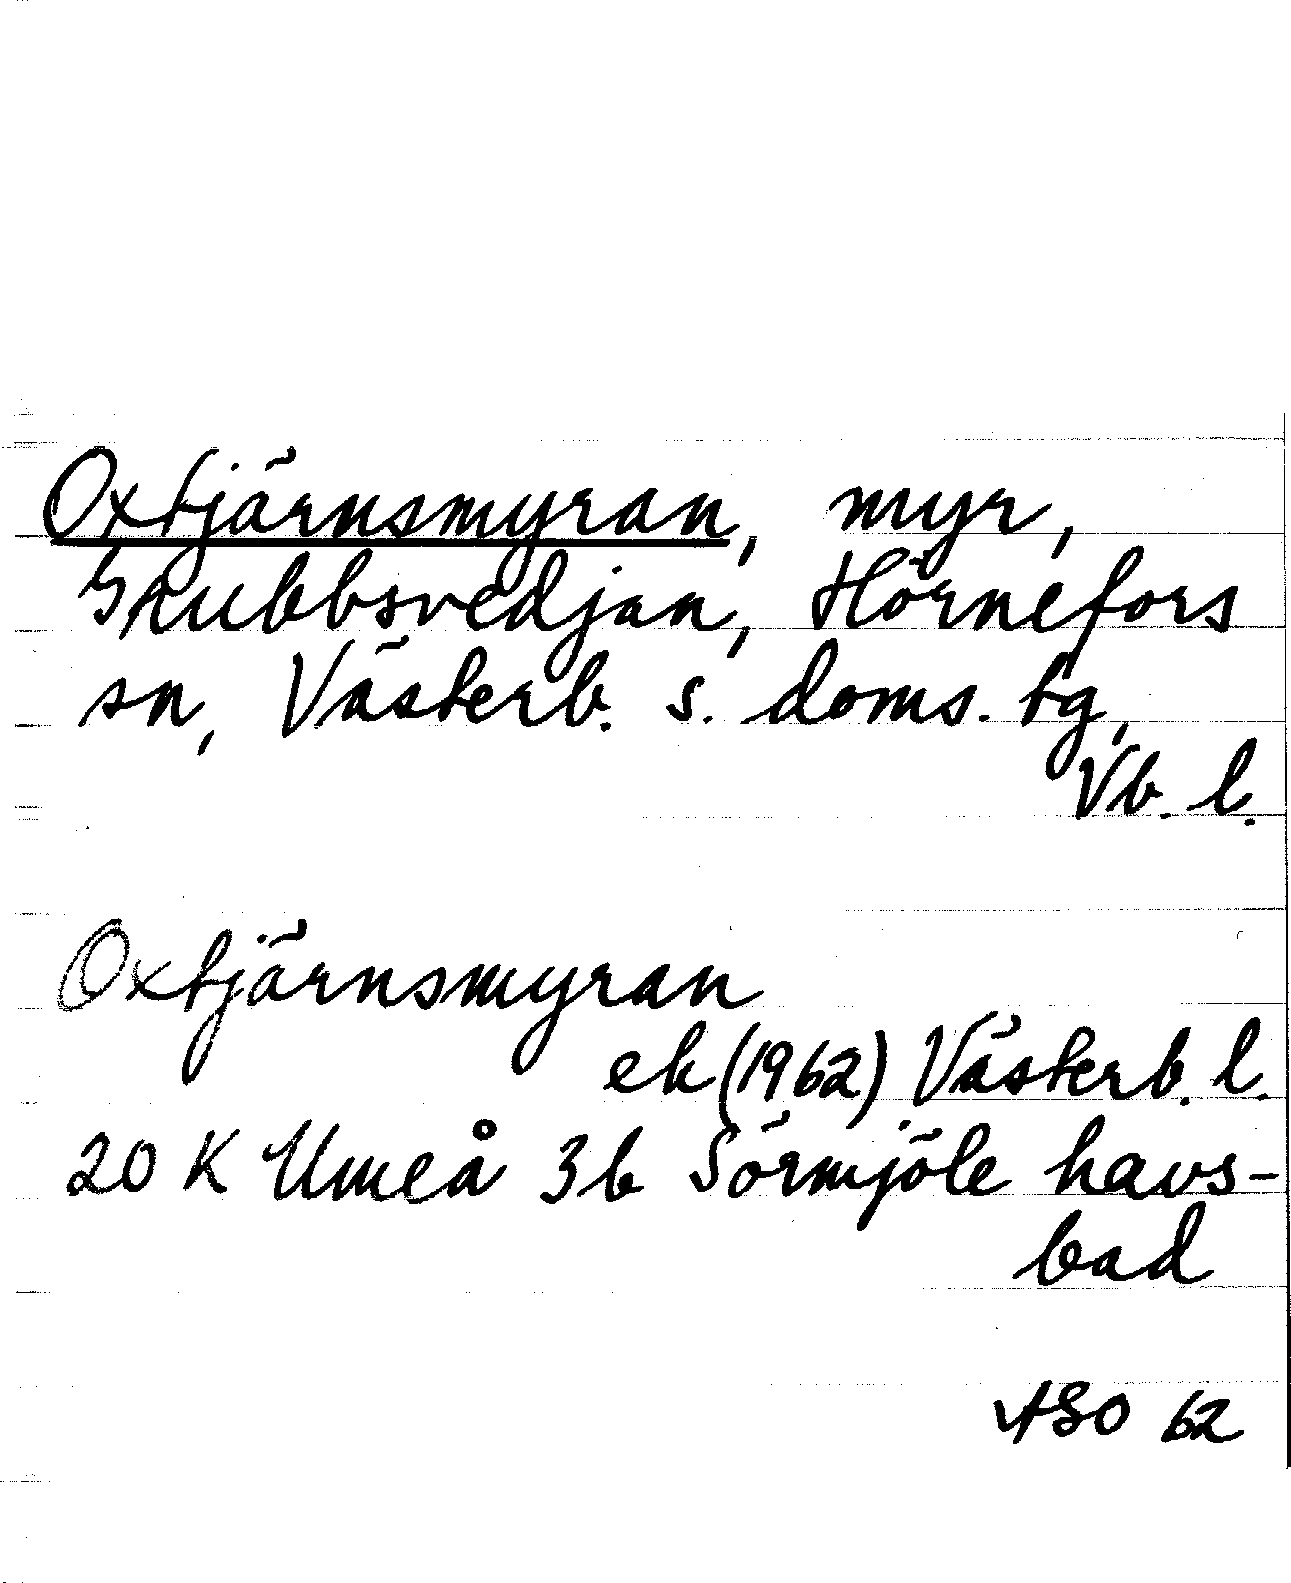 Oxtjärnsmyran, myr,
Stubbsvedjan, Hörnefors
sn, Västerb. s. doms. tg,
Vb. l.
Oxtjärnsmyran
ek (1962) Västerb. l.
20 K Umeå 3b Sörmjöle havs-
bad
ASO 62